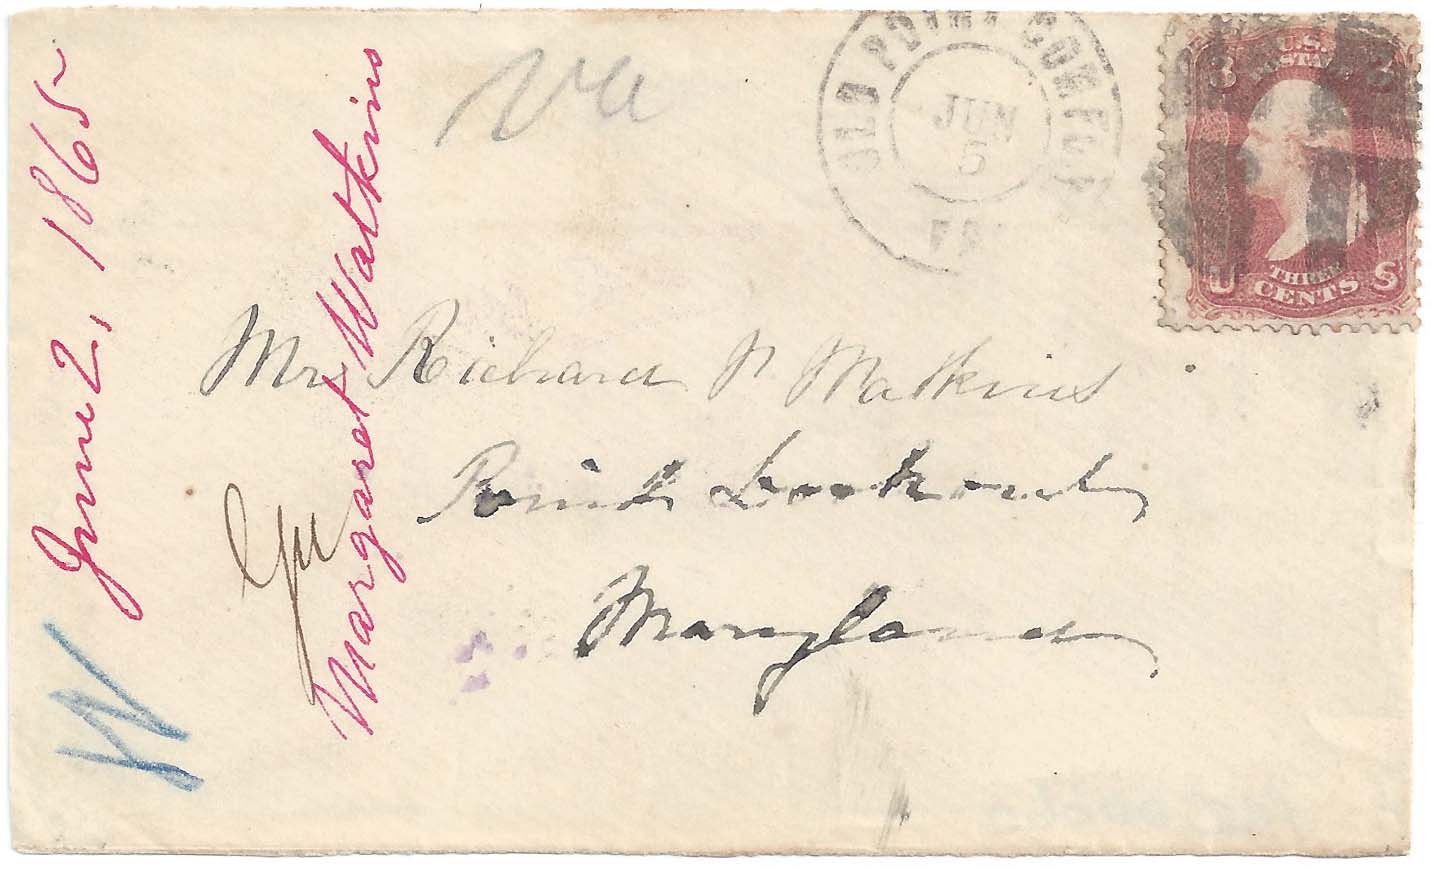 June 2, 1865
Margaret Watkins
Va
OLD POINT COMFORT
JUN
5
VA
U.S.
POSTAGE
3
THREE
CENTS
U S
Mr Richard P. Watkins
Point Lookout
Maryland
W